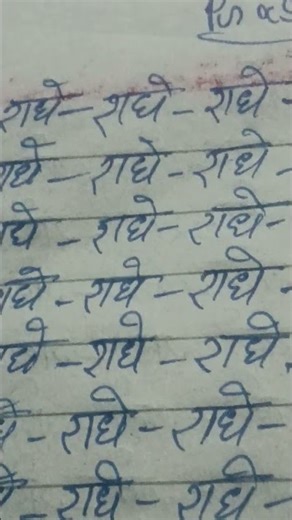 राधे - राधे - राधे -
राधे - राधे - राधे -
राधे - राधे - राधे -
राधे - राधे - राधे -
राधे - राधे - राधे
- राधे - राधे -
- राधे - राधे -